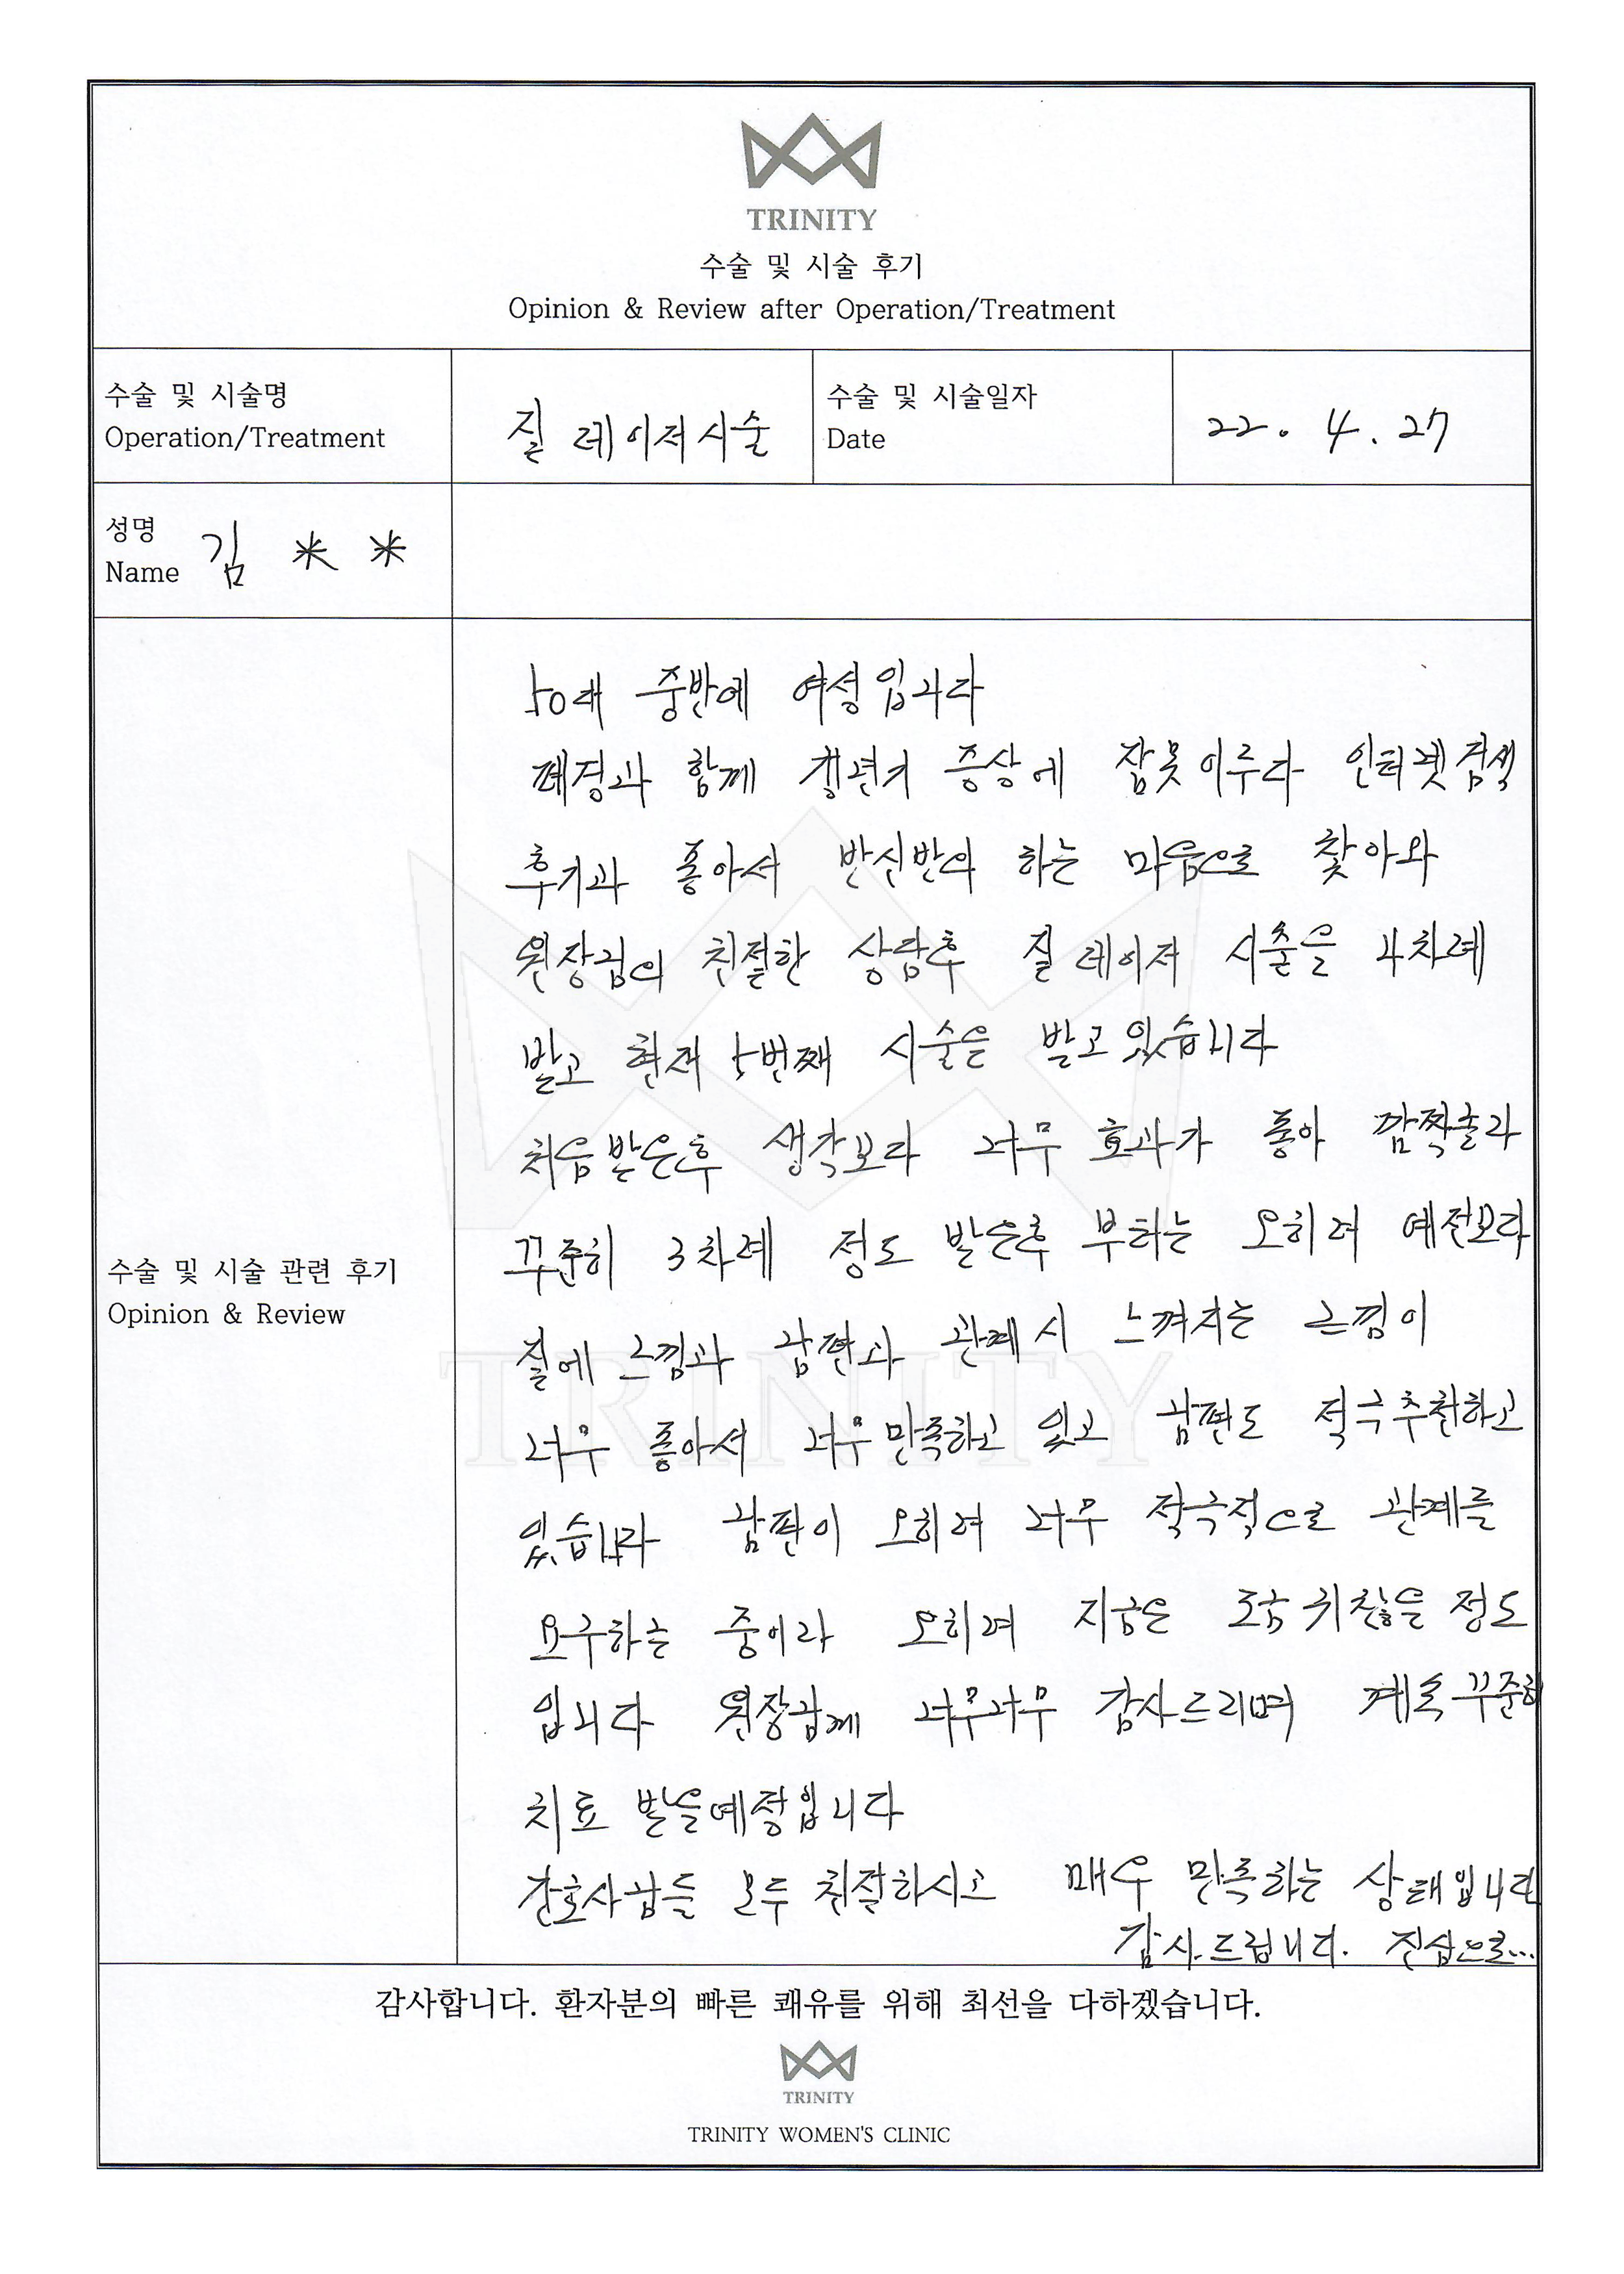 TRINITY
수술 및 시술 후기
Opinion & Review after Operation/Treatment
수술 및 시술명
Operation/Treatment
질 레이저시술
수술 및 시술일자
Date
22. 4. 27
성명
Name
김 * *
수술 및 시술 관련 후기
Opinion & Review
50대 중반에 여성입니다
폐경과 함께 갱년기 증상에 잠못이루다 인터넷검색
후기과 좋아서 반신반의 하는 마음으로 찾아와
원장님의 친절한 상담후 질 레이저 시술을 4차례
받고 현재 5번째 시술을 받고있습니다
처음받은후 생각보다 너무 효과가 좋아 깜짝놀라
꾸준히 3차례 정도 받은후 부터는 오히려 예전보다
질에 느낌과 남편과 관계시 느껴지는 느낌이
너무 좋아서 너무만족하고 있고 남편도 적극추천하고
있습니다 남편이 오히려 너무 적극적으로 관계를
요구하는 중이라 오히려 지금은 조금 귀찮을 정도
입니다 원장님께 너무너무 감사드리며 계속 꾸준히
치료 받을예정입니다
간호사님들 모두 친절하시고 매우 만족하는 상태입니다
감사드립니다. 진심으로...
감사합니다. 환자분의 빠른 쾌유를 위해 최선을 다하겠습니다.
TRINITY
TRINITY WOMEN'S CLINIC
TRINITY